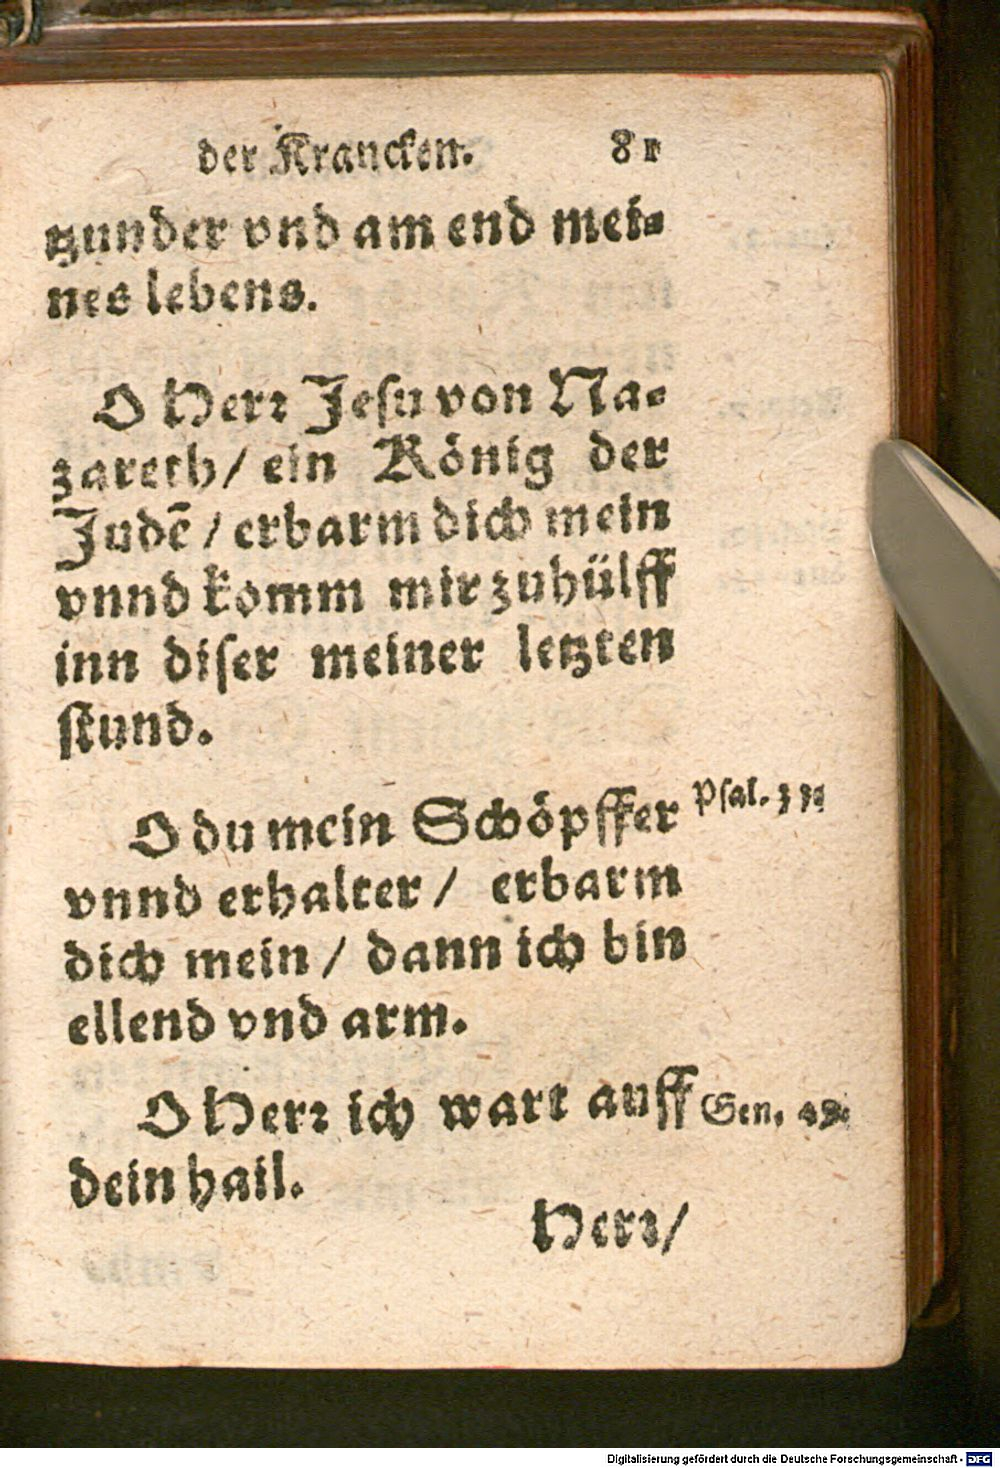 der Krancken. 81
tzunder vnd am end mei-
nes lebens.
O Herr Jesu von Na-
zareth/ ein König der
Judē/ erbarm dich mein
vnnd komm mir zuhülff
inn diser meiner letzten
stund.
O du mein Schöpffer
Psal.
vnnd erhalter/ erbarm
dich mein/ dann ich bin
ellend vnd arm.
O Herr ich wart auff
Gen. 49.
dein hail.
Herr/
Digitalisierung gefördert durch die Deutsche Forschungsgemeinschaft - DFG